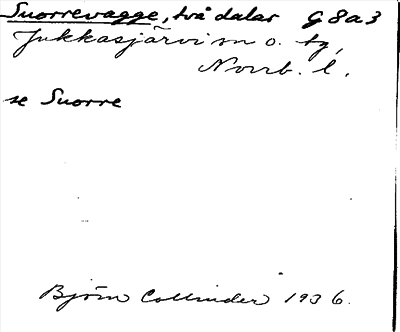 Suorrevagge, två dalar G 8 a 3
Jukkasjärvi sn o. tg,
Norrb. l.
se Suorre
Björn Collinder 1936.